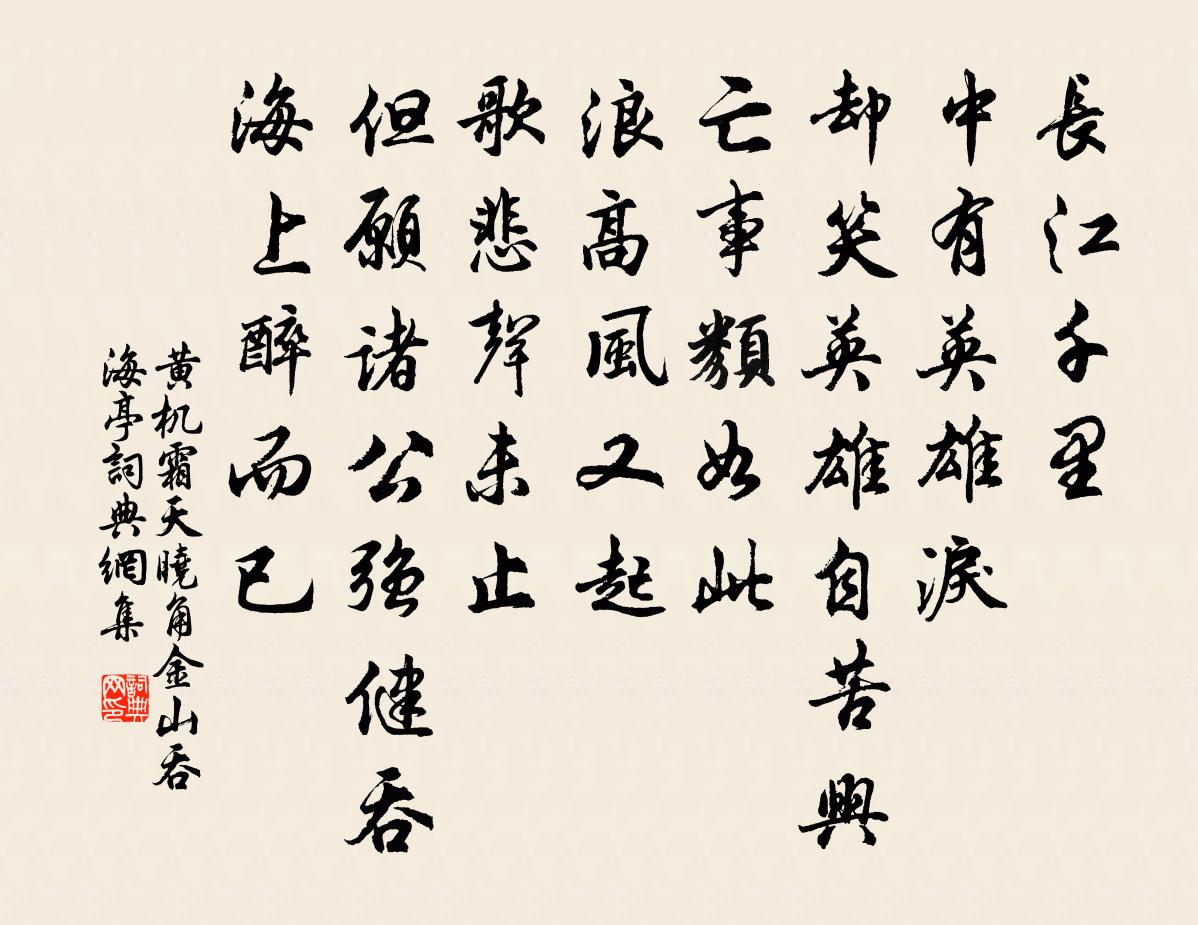 長江千里
中有英雄淚
却笑英雄自苦興
亡事類如此
浪高風又起
歌悲聲未止
但願諸公強健吞
海上醉而已
黄机霜天曉角金山吞
海亭詞典網集
詞典
网印